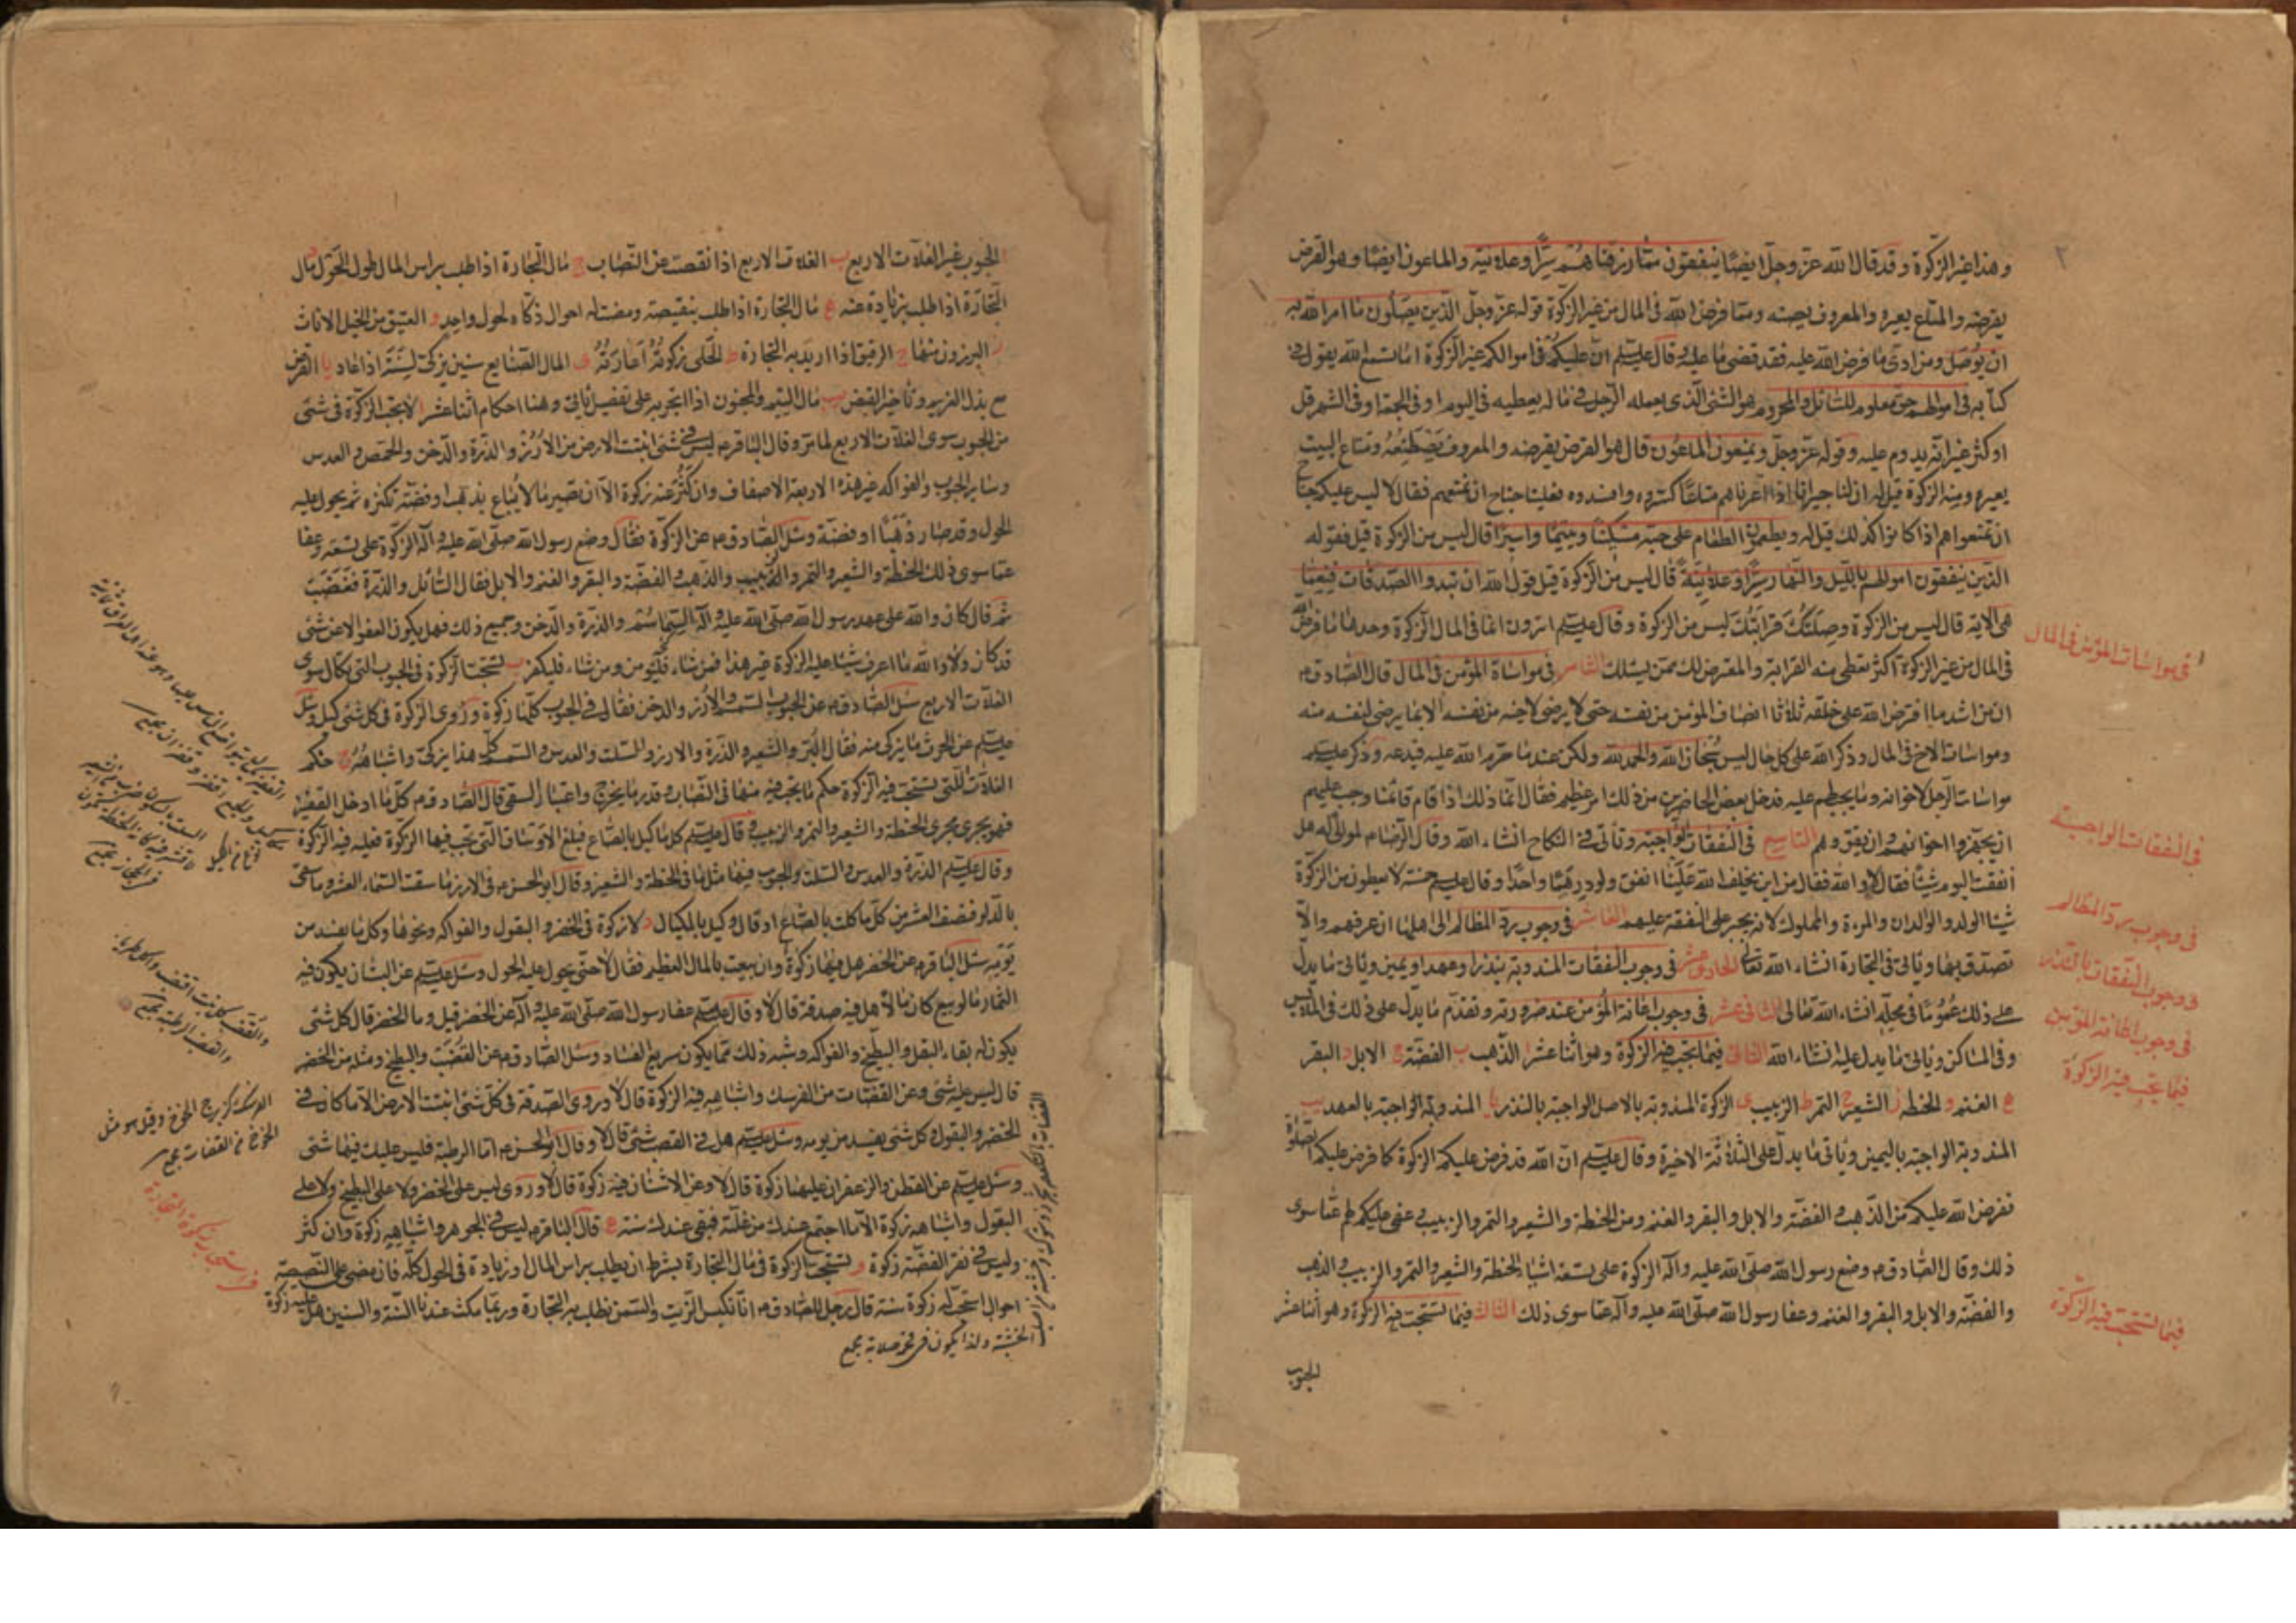 ٢
وهذا غير الزكوة وقد قال الله عز وجل ايضا ينفقون مما رزقناهم سرا وعلانية والماعون ايضا وهو القرض
يقرضه والمتاع يعيره والمعروف يصنعه ومما فرض الله فى المال من غير الزكوة قوله عز وجل الذين يصلون ما امر الله به
ان يوصل ومن ادى ما فرض الله عليه فقد قضى ما عليه وقال عليه السلم ان عليكم فى اموالكم غير الزكوة اما تسمع الله يقول فى
كتابه فى اموالهم حق معلوم للسائل والمحروم هو الشئ الذى يعمله الرجل فى ماله يعطيه فى اليوم او فى الجمعة او فى الشهر قل
او كثر غير انه يدوم عليه وقوله عز وجل ويمنعون الماعون قال هو القرض يقرضه والمعروف يصطنعه ومتاع البيت
يعيره ومنه الزكوة قيل له ان لنا جيرانا اذا اعرناهم متاعا كسروه وافسدوه فعلينا جناح ان نمنعهم فقال لا ليس عليكم جناح
ان تمنعوا هم اذا كانوا كذلك قيل له ويطعمون الطعام على حبه مسكينا ويتيما واسيرا قال ليس من الزكوة قيل فقوله
الذين ينفقون اموالهم بالليل والنهار سرا وعلانية قال ليس من الزكوة قيل قول الله ان تبدوا الصدقات فنعما
هى الاية قال ليس من الزكوة وصلتك قرابتك ليس من الزكوة وقال عليه السلم اترون انما فى المال الزكوة وحدها ما فرض الله
فى المال من غير الزكوة اكثر تعطى منه القرابة والمعترض لك ممن يسئلك الثامن فى مواساة المؤمن فى المال قال الصادق م
ان من اشد ما افترض الله على خلقه ثلاثا انصاف المؤمن من نفسه حتى لا يرضى لاخيه من نفسه الا بما يرضى لنفسه منه
ومواسات الاخ فى المال وذكر الله على كل حال ليس سبحان الله والحمد لله ولكن عند ما حرم الله عليه فيدعه وذكر عليه السلم
مواسات الرجل لاخوانه وما يجب لهم عليه فدخل بعض الحاضرين من ذلك امر عظيم فقال انما ذلك اذا قام قائمنا وجب عليهم
ان يجهزوا اخوانهم وان يقووهم التاسع فى النفقات الواجبة وتأتى فى النكاح انشاء الله وقال الرضا م لمولى له هل
انفقت اليوم شيئا فقال لا والله فقال من اين يخلف الله علينا انفق ولو درهما واحدا وقال عليه السلم خمسة لا يعطون من الزكوة
شيئا الولد والوالدان والمرءة والمملوك لانه يجبر على النفقة عليهم العاشر فى وجوب رد المظالم الى اهلها ان عرفهم والا
تصدق بها ويأتى فى التجارة انشاء الله تعالى الحادى عشر فى وجوب النفقات المندوبة بنذر او عهد او يمين ويأتى ما يدل
على ذلك عموما فى محله انشاء الله تعالى الثانى عشر فى وجوب اعانة المؤمن عند ضرورته وتقدم ما يدل على ذلك فى الملابس
وفى المساكن ويأتى ما يدل عليه انشاء الله الثانى فيما تجب فيه الزكوة وهو اثنا عشر ا الذهب ب الفضة ج الابل د البقر
ه الغنم و الحنطة ز الشعير ح التمر ط الزبيب ى الزكوة المندوبة بالاصل الواجبة بالنذر يا المندوبة الواجبة بالعهد يب
المندوبة الواجبة باليمين ويأتى ما يدل على الثلاثة الاخيرة وقال عليه السلم ان الله قد فرض عليكم الزكوة كما فرض عليكم الصلوة
ففرض الله عليكم من الذهب والفضة والابل والبقر والغنم ومن الحنطة والشعير والتمر والزبيب وعفى عليكم لهم عما سوى
ذلك وقال الصادق م وضع رسول الله صلى الله عليه وآله الزكوة على تسعة اشياء الحنطة والشعير والتمر والزبيب والذهب
والفضة والابل والبقر والغنم وعفا رسول الله صلى الله عليه وآله عما سوى ذلك الثالث فيما تستحب فيه الزكوة وهو اثنا عشر
الحبوب
فى مواسات المؤمن فى المال
فى النفقات الواجبة
فى وجوب رد المظالم
فى وجوب النفقات بالنذر
فى وجوب اعانة المؤمن
فيما تجب فيه الزكوة
فيما تستحب فيه الزكوة
ا الحبوب غير الغلات الاربع ب الغلات الاربع اذا نقصت عن النصاب ج مال التجارة اذا طلب براس المال طول الحول د مال
التجارة اذا طلب بزيادة عنه ه مال التجارة اذا طلب بنقيصة ومضت له احوال زكاه لحول واحد و العتيق من الخيل الاناث
ز البرزون منها ح الرقيق اذا اريد به التجارة ط الحلى زكوته اعارته ى المال الضايع سنين يزكى لسنة اذا عاد يا القرض
مع بذل الغريم وتأخير القبض يب مال اليتيم والمجنون اذا اتجر به على تفصيل يأتى وهنا احكام اثنا عشر ا لا تجب الزكوة فى شئ
من الحبوب سوى الغلات الاربع لما مر وقال الباقر م ليس فى شئ انبتت الارض من الارز والذرة والدخن والحمص والعدس
وساير الحبوب والفواكه غير هذه الاربعة الاصناف وان كثر ثمنه زكوة الا ان يصير مالا يباع بذهب او فضة تكنزه ثم يحول عليه
الحول وقد صار ذهبا او فضة وسئل الصادق م عن الزكوة فقال وضع رسول الله صلى الله عليه وآله الزكوة على تسعة وعفا
عما سوى ذلك الحنطة والشعير والتمر والزبيب والذهب والفضة والبقر والغنم والابل فقال السائل والذرة فغضب
ثم قال كان والله على عهد رسول الله صلى الله عليه وآله السماسم والذرة والدخن وجميع ذلك فهل يكون العفو الا عن شئ
قد كان ولا والله ما اعرف شيئا عليه الزكوة غير هذا فمن شاء فليؤمن ومن شاء فليكفر ب تستحب الزكوة فى الحبوب التى تكال سوى
الغلات الاربع سئل الصادق م عن الحبوب السمسم والارز والدخن فقال فى الحبوب كلها زكوة وروى الزكوة فى كل شئ كيل وسئل
عليه السلم عن الحرث ما يزكى منه فقال البر والشعير والذرة والارز والسلت والعدس والسمسم كل هذا يزكى واشباهه ج حكم
الغلات التى تستحب فيه الزكوة حكم ما يجب فيه منها فى النصاب وقدر ما يخرج واعتبار السقى قال الصادق م كل ما ادخل القفيز
فهو يجرى مجرى الحنطة والشعير والتمر والزبيب وقال عليه السلم كل ما كيل بالصاع فبلغ الاوساق التى تجب فيها الزكوة فعليه فيه الزكوة
وقال عليه السلم الذرة والعدس والسلت والحبوب فيها مثل ما فى الحنطة والشعير وقال ابو الحسن م فى الارز ما سقت السماء العشر وما سقى
بالدلو فنصف العشر من كل ما كلت بالصاع او قال وكيل بالمكيال د لا زكوة فى الخضر والبقول والفواكه ونحوها وكل ما يفسد من
يومه سئل الباقر م عن الخضر هل فيها زكوة وان بيعت بالمال العظيم فقال لا حتى يحول عليه الحول وسئل عليه السلم عن البستان يكون فيه
الثمار ما لو بيع كان مالا هل فيه صدقة قال لا وقال عليه السلم عفا رسول الله صلى الله عليه وآله عن الخضر قيل وما الخضر قال كل شئ
يكون له بقاء البقل والبطيخ والفواكه وشبه ذلك مما يكون سريع الفساد وسئل الصادق م عن القضب والبطيخ ومثله من الخضر
قال ليس عليه شئ وعن الغضات من الفرسك واشباهه فيه الزكوة قال لا وروى الصدقة فى كل شئ انبتت الارض الا ما كان فى
الخضر والبقول وكل شئ يفسد من يومه وسئل عليه السلم هل فى القصب شئ قال لا وقال ابو الحسن م اما الرطبة فليس عليك فيها شئ
وسئل عليه السلم عن القطن والزعفران عليهما زكوة قال لا وعن الاشنان فيه زكوة قال لا وروى ليس على الخضر ولا على البطيخ ولا على
البقول واشباهه زكوة الا ما اجتمع عندك من غلته فبقى عندك سنة ه قال الباقر م ليس فى الجوهر واشباهه زكوة وان كثر
وليس فى نقر الفضة زكوة و تستحب الزكوة فى مال التجارة بشرط ان يطلب براس المال او زيادة فى الحول كله فان مضى على النقيصة
احوال استحب له زكوة سنة قال رجل للصادق م انا نكبس الزيت والسمن نطلب به التجارة وربما مكث عندنا السنة والسنين هل عليه زكوة
فى استحباب زكوة التجارة